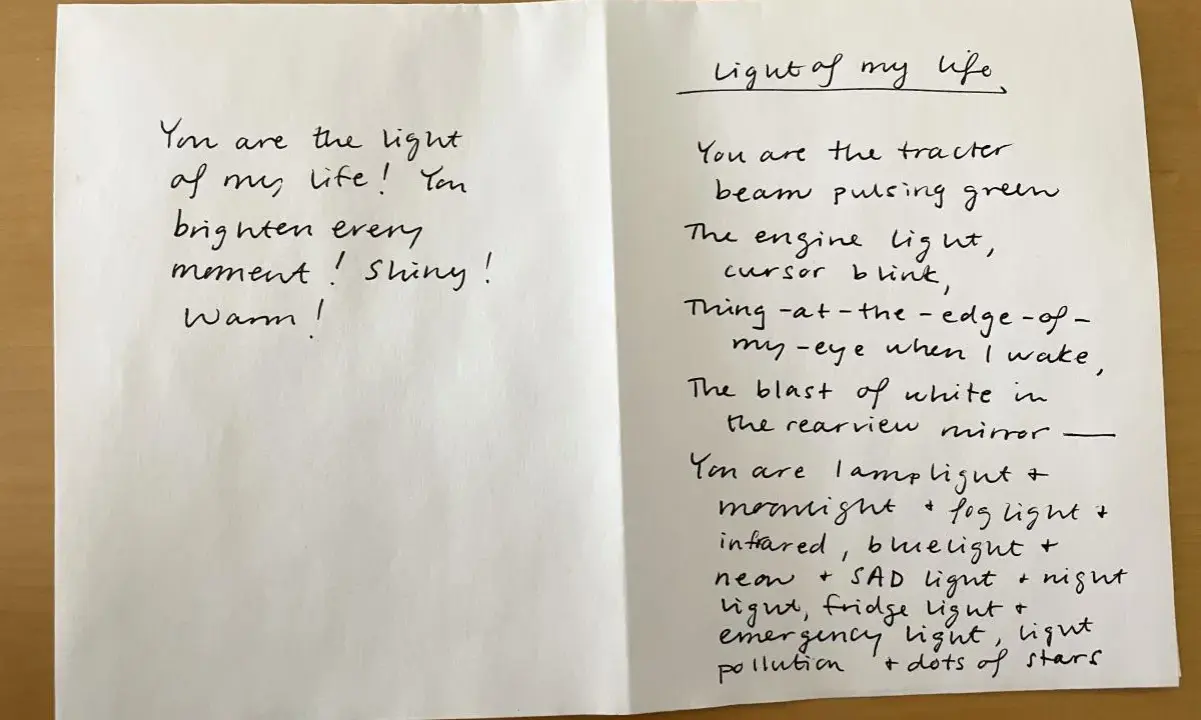 You are the light
of my life! You
brighten every
moment! Shiny!
Warm!
Light of my life
You are the tracter
beam pulsing green
The engine light,
cursor blink,
Thing-at-the-edge-of-
my-eye when I wake,
The blast of white in
the rearview mirror —
You are lamplight +
moonlight + fog light +
infrared, bluelight +
neon + SAD light + night
light, fridge light +
emergency light, light
pollution + dots of stars